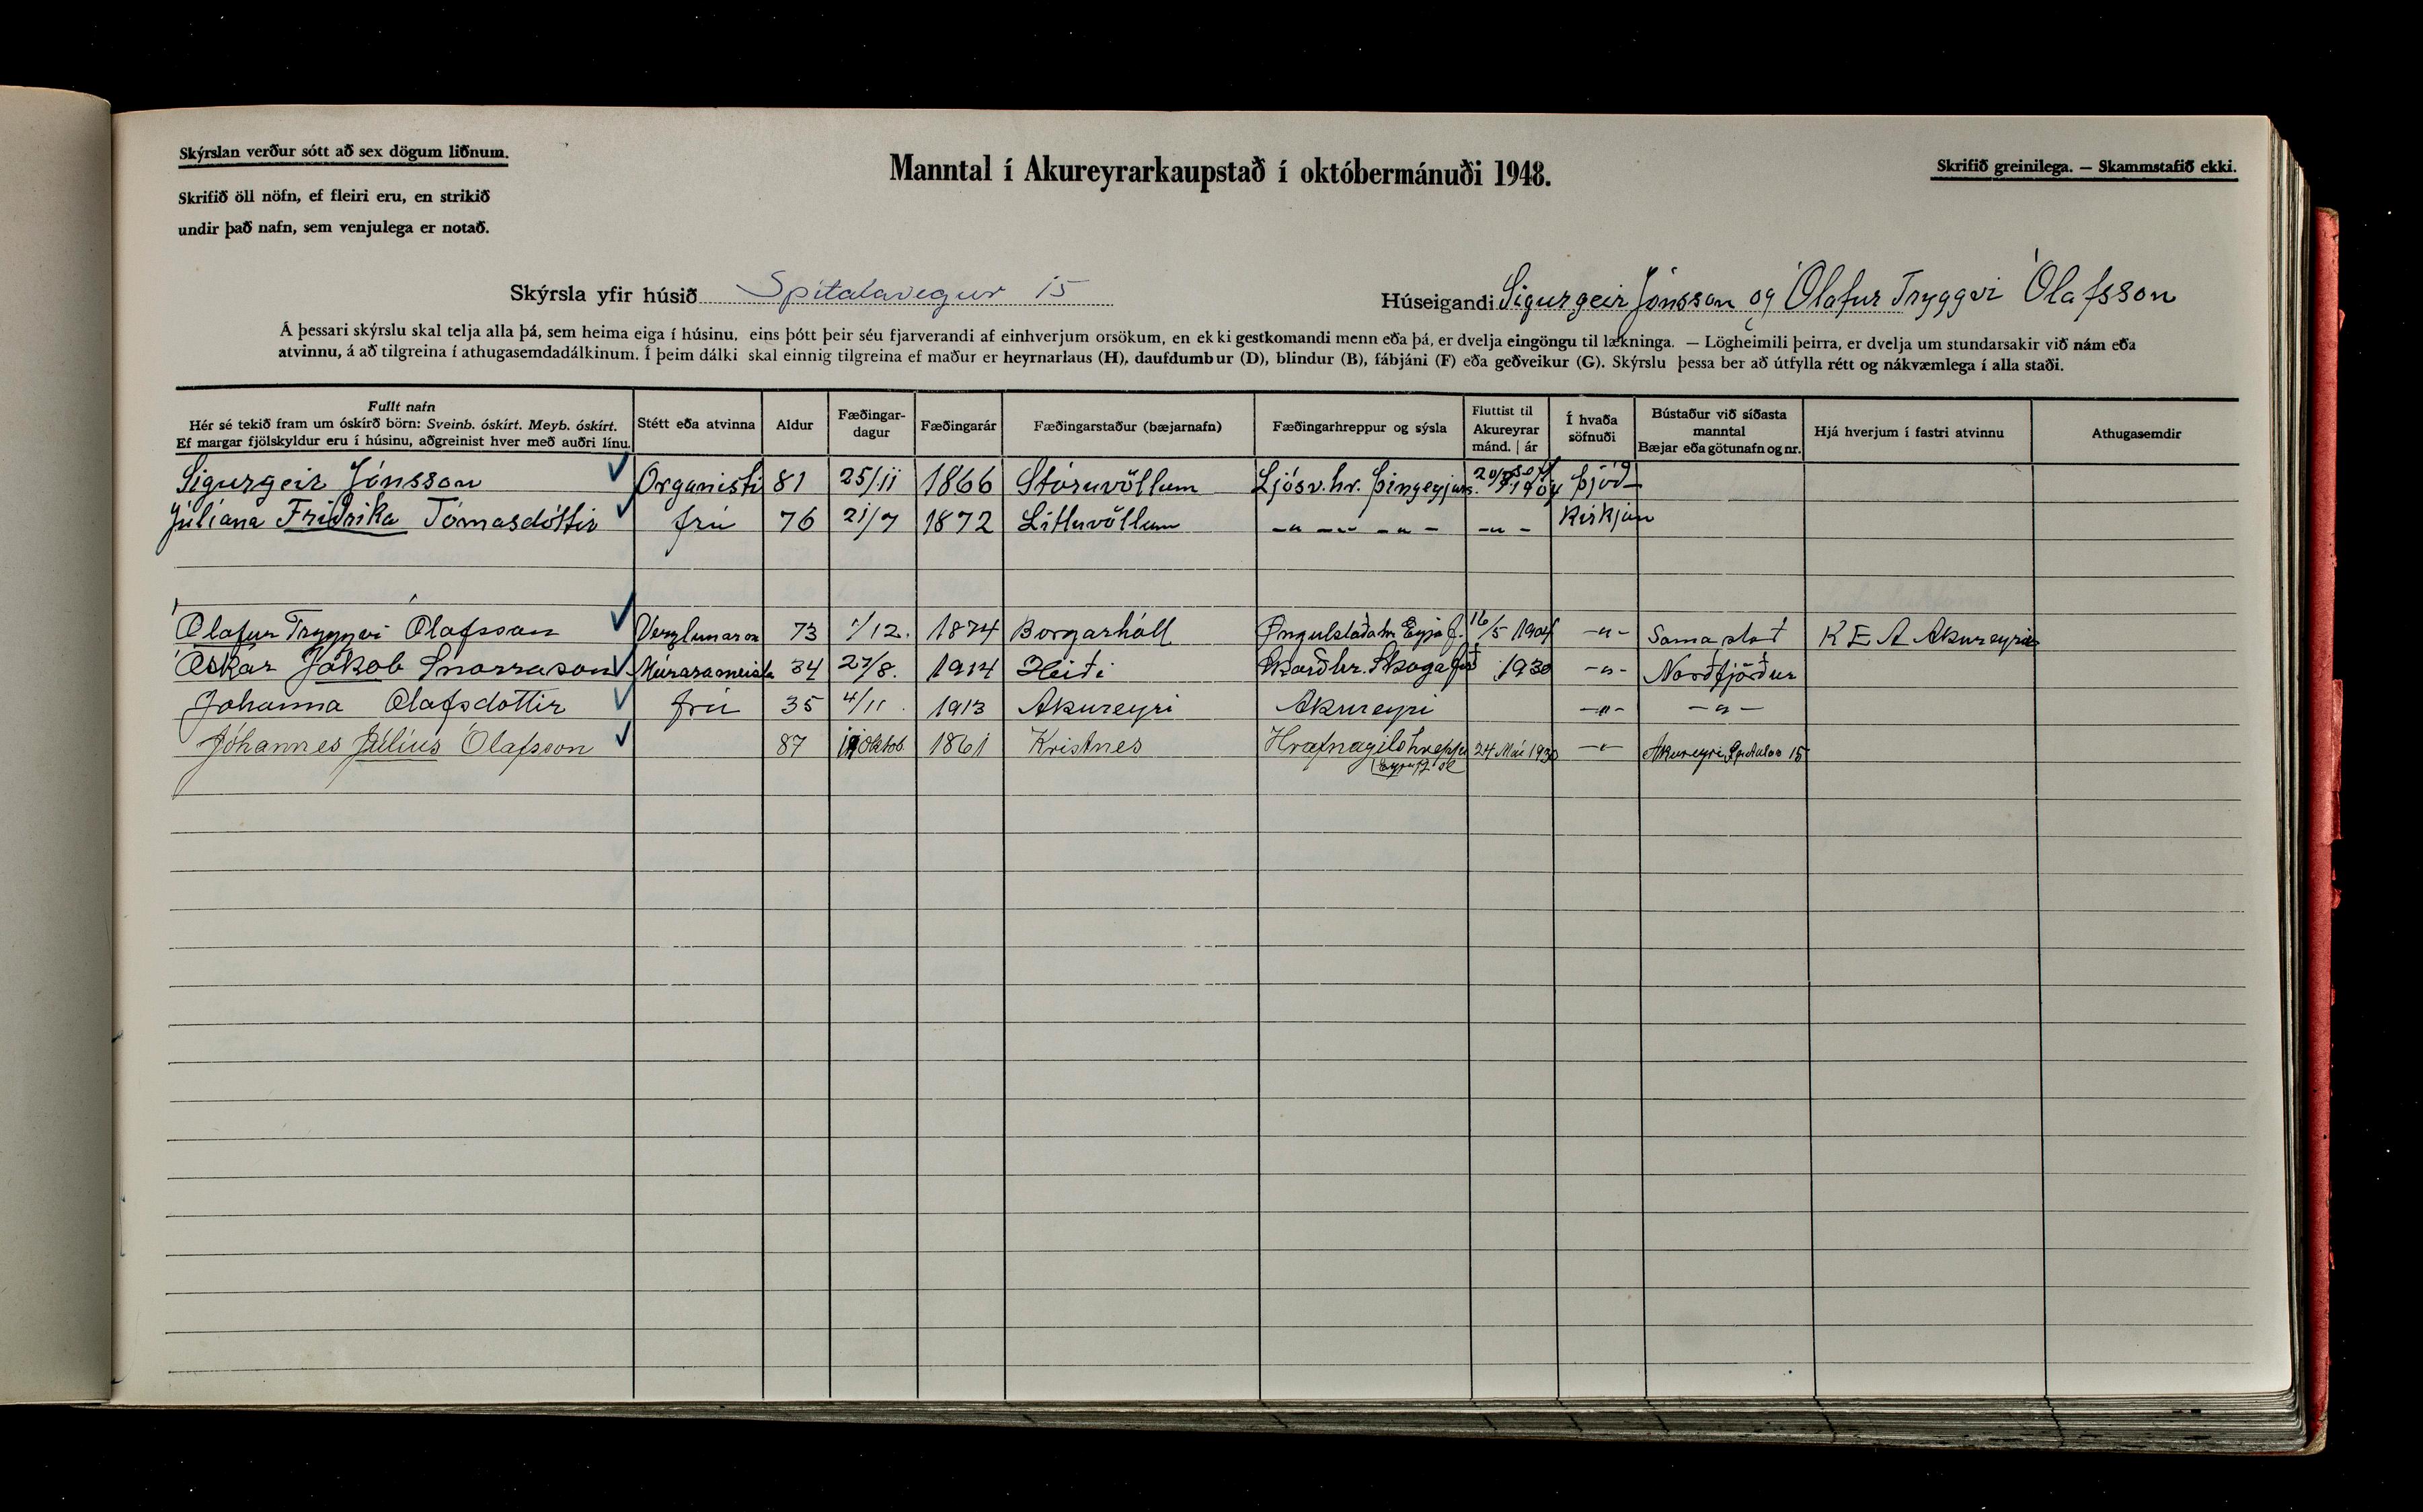 Skýrslan verður sótt að sex dögum liðnum.
Skrifið öll nöfn, ef fleiri eru, en strikið
undir það nafn, sem venjulega er notað.
Manntal í Akureyrarkaupstað í októbermánuði 1948.
Skrifið greinilega. — Skammstafið ekki.
Skýrsla yfir húsið Spítalavegur 15
Húseigandi Sigurgeir Jónsson og Ólafur Tryggvi Ólafsson
Á þessari skýrslu skal telja alla þá, sem heima eiga í húsinu, eins þótt þeir séu fjarverandi af einhverjum orsökum, en ekki gestkomandi menn eða þá, er dvelja eingöngu til lækninga. — Lögheimili þeirra, er dvelja um stundarsakir við nám eða
atvinnu, á að tilgreina í athugasemdadálkinum. Í þeim dálki skal einnig tilgreina ef maður er heyrnarlaus (H), daufdumbur (D), blindur (B), fábjáni (F) eða geðveikur (G). Skýrslu þessa ber að útfylla rétt og nákvæmlega í alla staði.
Fullt nafn
Hér sé tekið fram um óskírð börn: Sveinb. óskírt. Meyb. óskírt.
Ef margar fjölskyldur eru í húsinu, aðgreinist hver með auðri línu.
Stétt eða atvinna
Aldur
Fæðingar-
dagur
Fæðingarár
Fæðingarstaður (bæjarnafn)
Fæðingarhreppur og sýsla
Fluttist til
Akureyrar
mánd. | ár
Í hvaða
söfnuði
Bústaður við síðasta
manntal
Bæjar eða götunafn og nr.
Hjá hverjum í fastri atvinnu
Athugasemdir
Sigurgeir Jónsson Organisti 81 25/11 1866 Stóruvöllum Ljósv.hr. Þingeyjars. 1904 Þjóð-
Júlíana Friðrika Tómasdóttir frú 76 21/7 1872 Litluvöllum -"- -"- -"- -"- Kirkjan
Ólafur Tryggvi Ólafsson 73 1/12. 1874 Borgarhóll Öngulstaðahr. Eyjaf. 16/5 1904 -"- Sama stað K E A Akureyri
Óskar Jakob Snorrason Múrarameista 34 27/8. 1914 Heiði Skarðhr. Skagafj 1930 -"- Norðfjörður
Johanna Olafsdottir frú 35 4/11. 1913 Akureyri Akureyri -"- -"-
Jóhannes Júlíus Ólafsson 87 Oktob. 1861 Kristnes Hrafnagilshreppi 24 Maí 1930 -"- Akureyri Spítalav 15